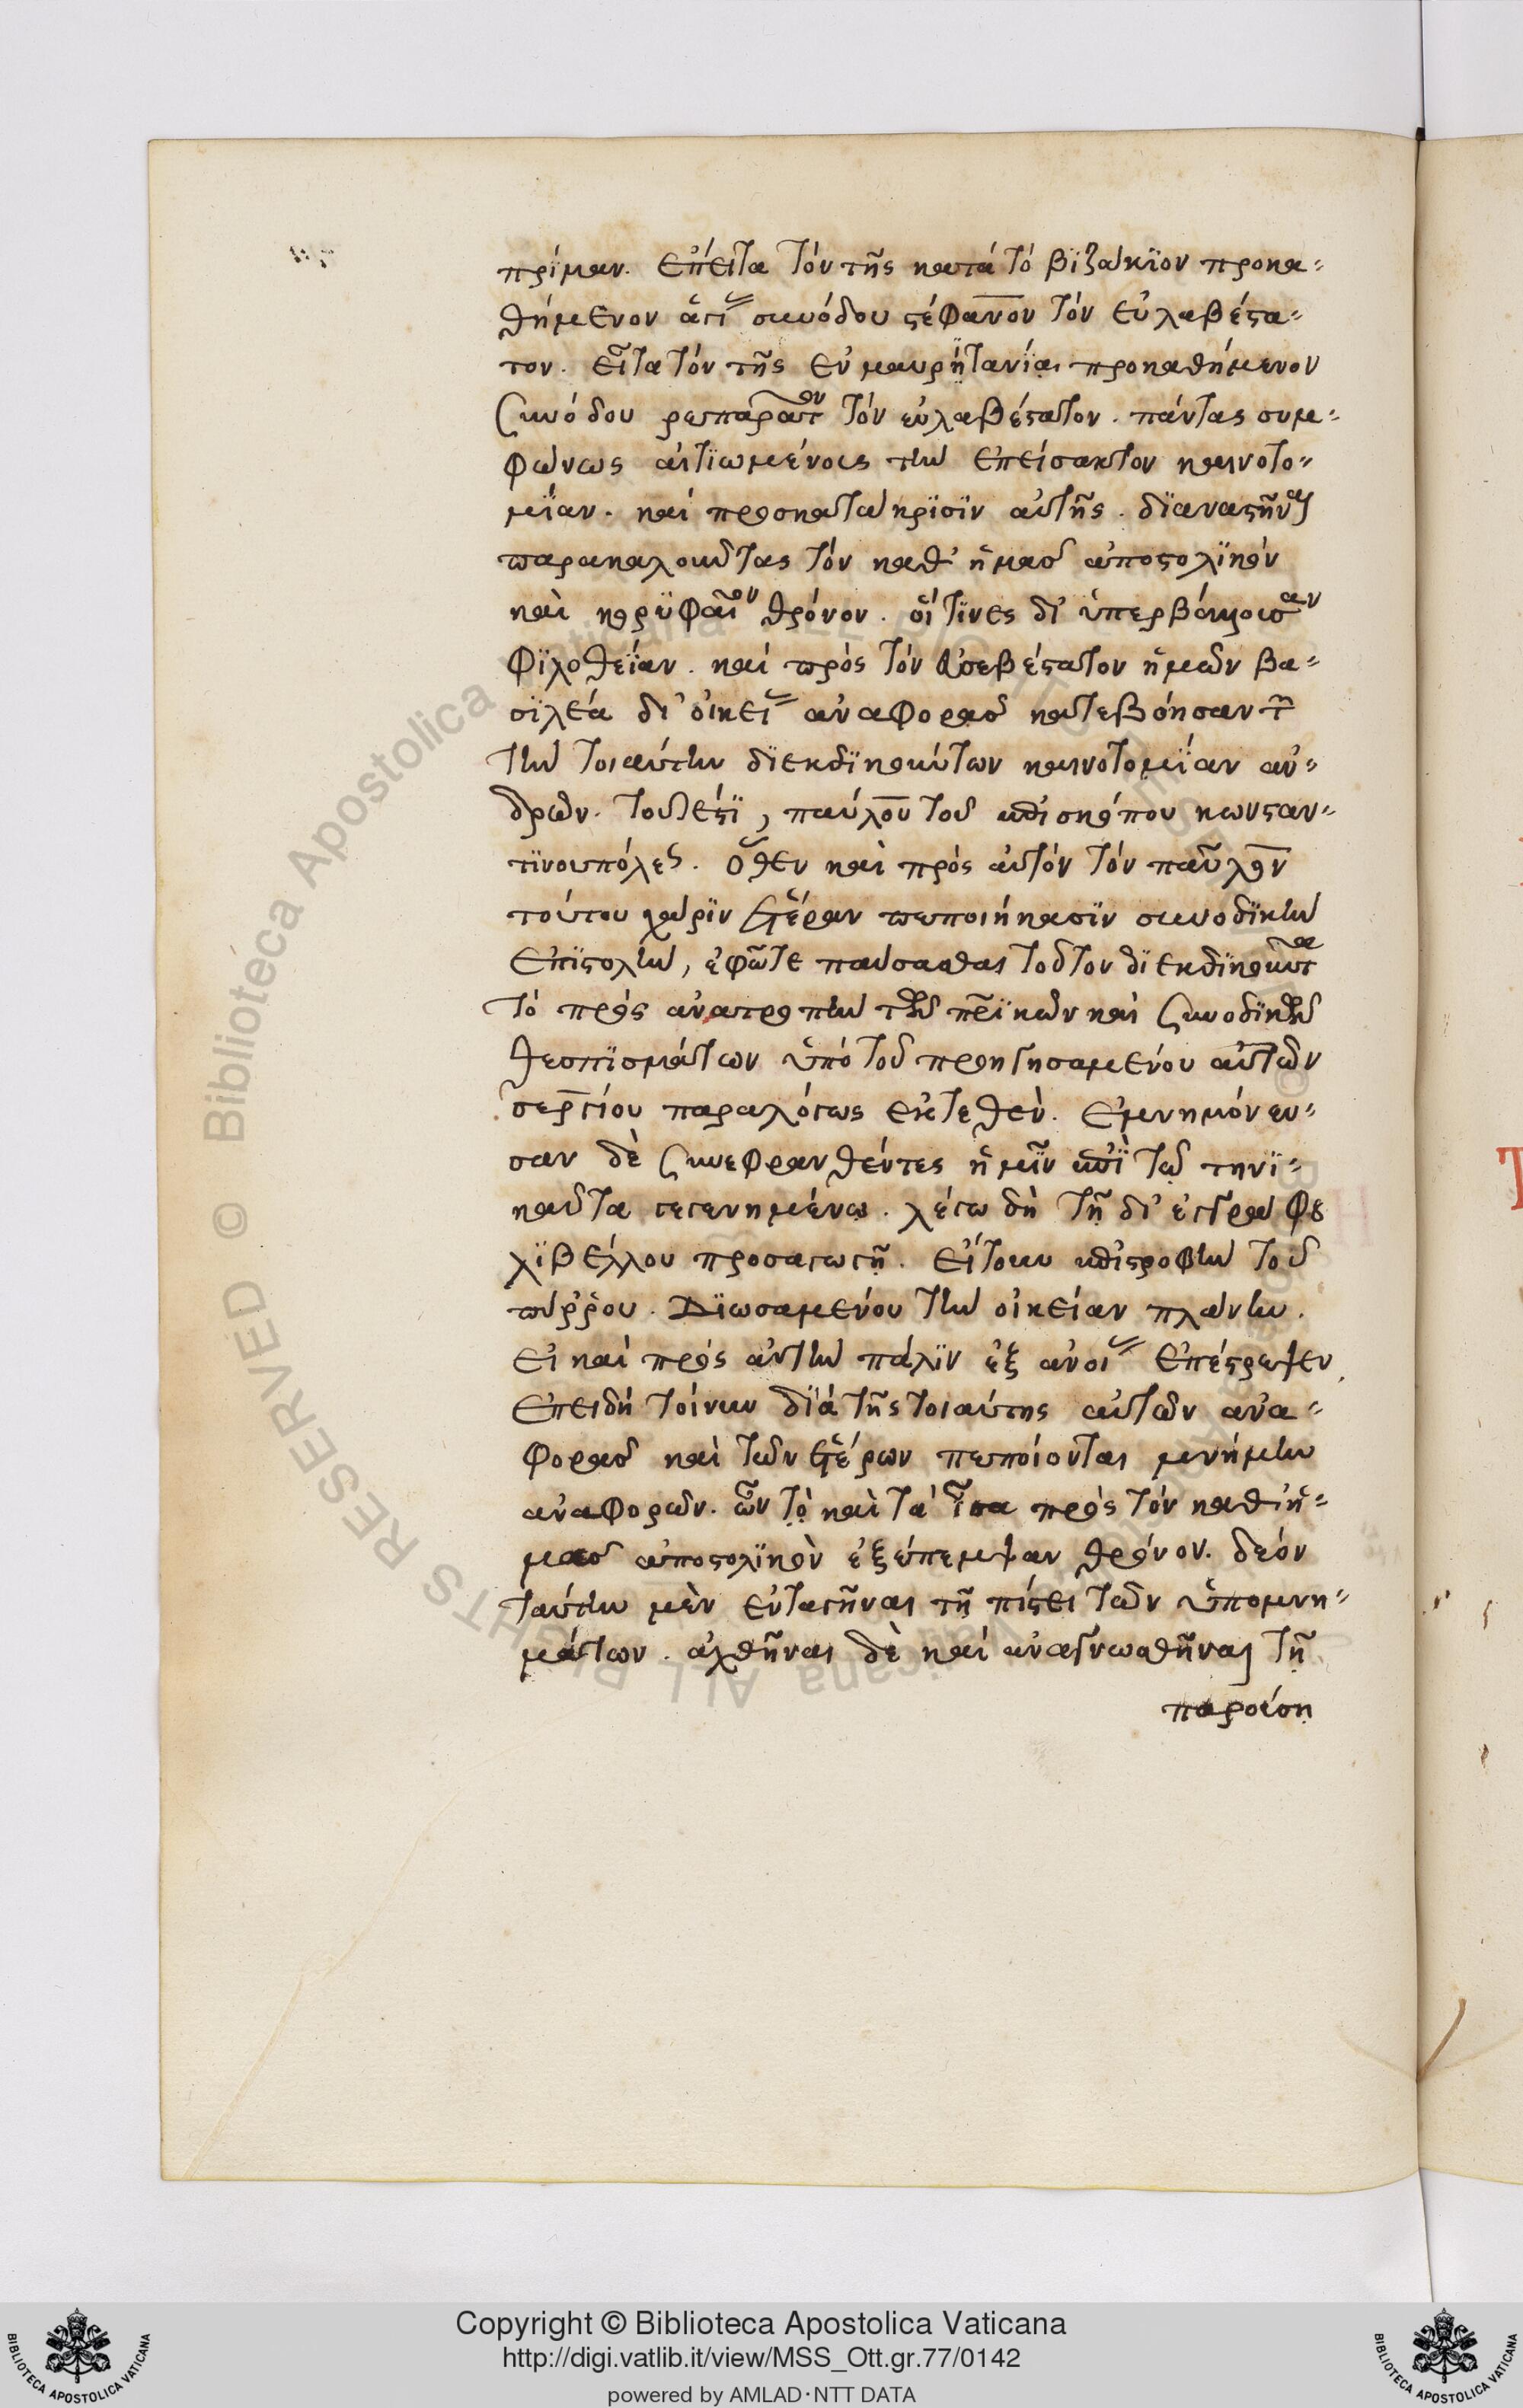 πρίμαν. ἔπειτα τὸν τῆς κατὰ τὸ βϊζάκϊον προκα-
θήμενον ἁγί συνόδου στέφανον τὸν εὐλαβέστα-
τον. εἶτα τὸν τῆς ἐν μαυρϊτανία προκαθήμενον
συνόδου ρεπαρᾶτον τὸν εὐλαβέστατον. πάντας συμ-
φώνως αἰτϊωμένους τὴν ἐπείσακτον καινοτο-
μΐαν. καὶ πρὸς κατάκρϊσϊν αὐτῆς. δϊαναστῆναι
παρακαλοῦντας τὸν καθ' ἡμᾶς ἀποστολϊκὸν
καὶ κορϋφαῖον θρόνον. οἵτϊνες δι' ὑπερβάλλουσαν
φϊλοθεΐαν. καὶ πρὸς τὸν εὐσεβέστατον ἡμῶν βα-
σϊλέα δι' οἰκεί ἀναφορᾶς κατεβόησαν τ
τὴν τοιαύτην δϊεκδϊκούντων καινοτομΐαν ἀν-
δρῶν. τουτέστϊ, παύλου τοῦ ἐπισκόπου κωνσταν-
τϊνουπόλεως. ὅθεν καὶ πρὸς αὐτὸν τὸν παῦλον
τούτου χάρϊν ἑτέραν πεποιήκασϊν συνοδϊκὴν
ἐπϊστολὴν, ἐφῶτε παύσασθαι τοῦτον δϊεκδϊκοῦντα
τὸ πρὸς ἀνατροπὴν τῶν πρϊκῶν καὶ συνοδϊκῶν
θεσπϊσμάτων ὑπὸ τοῦ προηγησαμένου αὐτῶν
σεργίου παραλόγως ἐκτεθὲν. ἐμνημόνευ-
σαν δὲ συνευφρανθέντες ἡμῖν ἐπῒ τῶ τηνϊ-
καῦτα γεγενημένω. λέγω δὴ τῆ δι' ἐγγράφου
λϊβέλλου προσαγωγῆ. εἴτουν ἐπιστροφὴν τοῦ
πύρρου. ἀπωσαμένου τὴν οἰκείαν πλάνην.
εἰ καὶ πρὸς αὐτὴν πάλϊν ἐξ ἀνοί ἐπέστρεψεν,
ἐπειδὴ τοίνυν δϊὰ τῆς τοιαύτης αὐτῶν ἀνα-
φορᾶς καὶ τῶν ἑτέρων πεποίονται μνήμην
ἀναφορῶν. ὧν τὸ καὶ τὰ ἶσα πρὸς τὸν καθ' ἡ-
μᾶς ἀποστολϊκὸν ἐξέπεμψαν θρόνον. δέον
ταύτην μὲν ἐνταγῆναι τῆ πίστει τῶν ὑπομνη-
μάτων. ἀχθῆναι δὲ καὶ ἀναγνωσθῆναι τῆ
παρούση
Copyright © Biblioteca Apostolica Vaticana
http://digi.vatlib.it/view/MSS_Ott.gr.77/0142
powered by AMLAD·NTT DATA